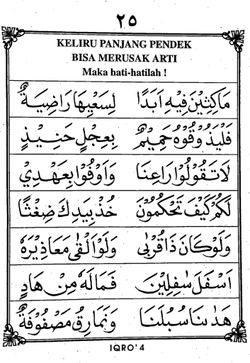 ٢٥
KELIRU PANJANG PENDEK
BISA MERUSAK ARTI
Maka hati-hatilah !
مَاكِثِيْنَ فِيْهِ اَبَدًا لِسَعْيِهَا رَاضِيَةٌ
فَلْيَذُوْقُوْهُ حَمِيْمٌ بِعِجْلٍ حَنِيْذٍ
لَا تَقُوْلُوْا رَاعِنَا وَاَوْفُوْا بِعَهْدِيْ
لَكُمْ كَيْفَ تَحْكُمُوْنَ خُذْ بِيَدِكَ ضِغْثًا
وَلَوْ كَانَ ذَا قُرْبٰى وَلَوْ اَلْقٰى مَعَاذِيْرَهٗ
اَسْفَلَ سٰفِلِيْنَ فَمَا لَهٗ مِنْ هَادٍ
هَدٰىنَا سُبُلَنَا وَنَمَارِقُ مَصْفُوْفَةٌ
IQRO' 4